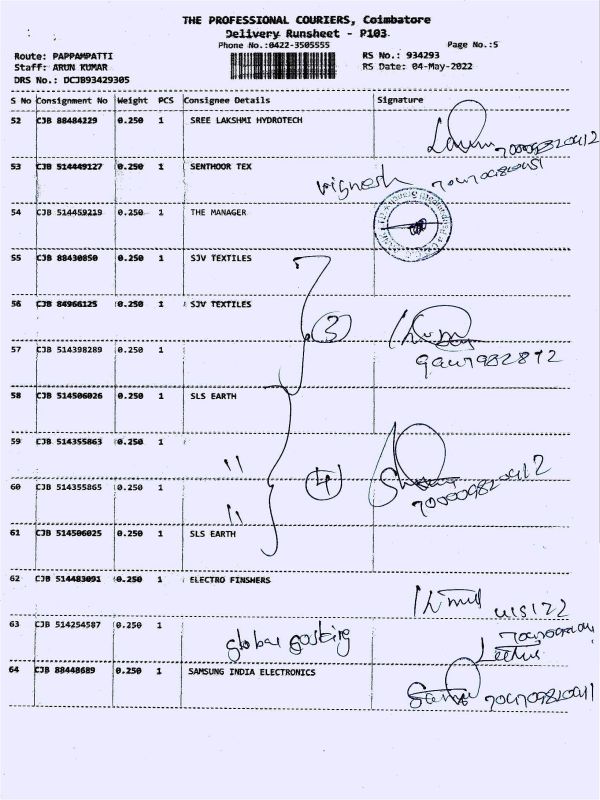 THE PROFESSIONAL COURIERS, Coimbatore
Delivery Runsheet - P103
Phone No.:0422-3505555 Page No.:5
Route: PAPPAMPATTI RS No.: 934293
Staff: ARUN KUMAR RS Date: 04-May-2022
DRS No.: DCJB93429305
S No Consignment No Weight PCS Consignee Details Signature
52 CJB 88484229 0.250 1 SREE LAKSHMI HYDROTECH
53 CJB 514449127 0.250 1 SENTHOOR TEX vignesh
54 CJB 514459219 0.250 1 THE MANAGER
55 CJB 88430850 0.250 1 SJV TEXTILES
56 CJB 84966125 0.250 1 SJV TEXTILES
3
57 CJB 514398289 0.250 1
58 CJB 514506026 0.250 1 SLS EARTH
59 CJB 514355863 0.250 1 "
4
60 CJB 514355865 0.250 1 "
61 CJB 514506025 0.250 1 SLS EARTH
62 CJB 514483091 0.250 1 ELECTRO FINSHERS
63 CJB 514254587 0.250 1 global
64 CJB 88448689 0.250 1 SAMSUNG INDIA ELECTRONICS